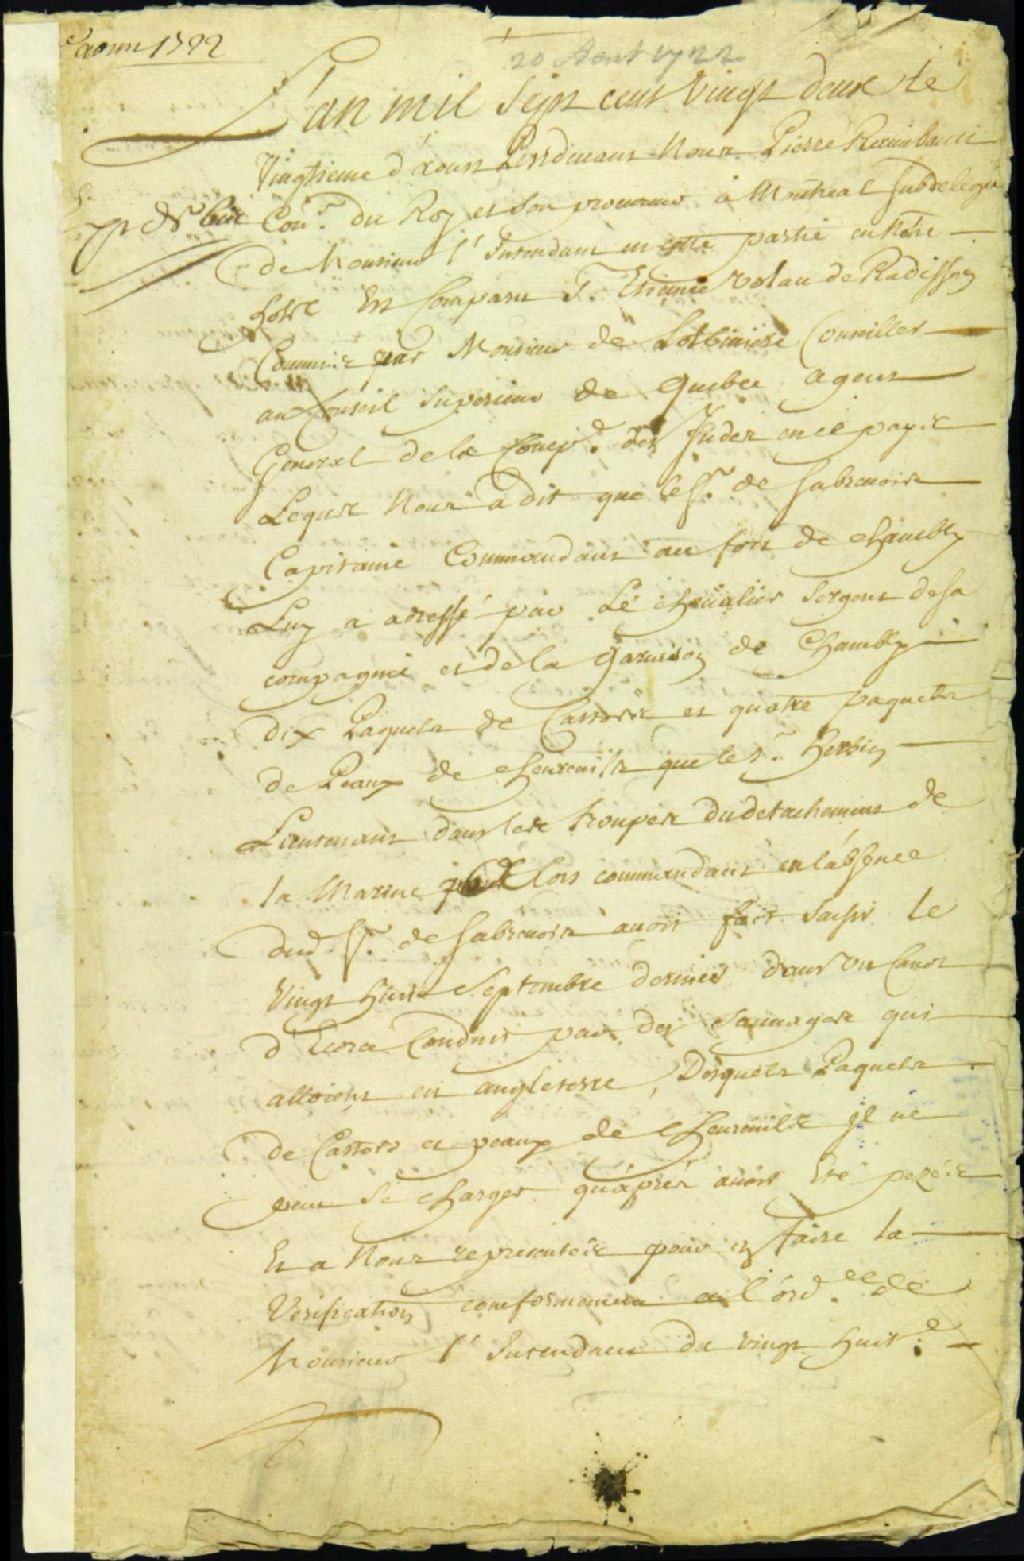 aoust 1722
20 Aout 1722
L'an mil Sept cent Vingt deux le
Vingtieme d'aoust Pardevant Nous Pierre Raimbault
Con.er du Roy et Son procureur a Montreal subdelegué
de Monsieur l'Intendant en cette partie en Notre
hotel Est Comparu Sr. Etienne Volan de Radisson
Commis par Monsieur de Lotbiniere Conseiller
au Conseil Superieur de Quebec agent
General de la Comp.e des Indes en ce pays
Lequel Nous a dit que le Sr. de Sabrevois
Capitaine Commandant au fort de Chambly
Luy a adressé par Le chevalier Sergent de sa
compagnie et de la Garnison de Chambly
dix Paquets de Castors et quatre paquets
de Peaux de chevreuils que le Sr. Herbin
Lieutenant dans les troupes du detachement de
la Marine pour Lors commandant en l'absence
dud. Sr. de Sabrevois avoit fait Saisir le
Vingt huit Septembre dernier dans un Canot
d'Ecorce Conduit par des Sauvages qui
alloient en angleterre, Desquels Paquets
de Castors et peaux de Chevreuils il ne
veut Se charger qu'aprés avoir Eté pezés
Et a Nous representés pour en faire la
Verification conformement a l'ord.ce de
Monsieur l'Intendant du vingt huit.e